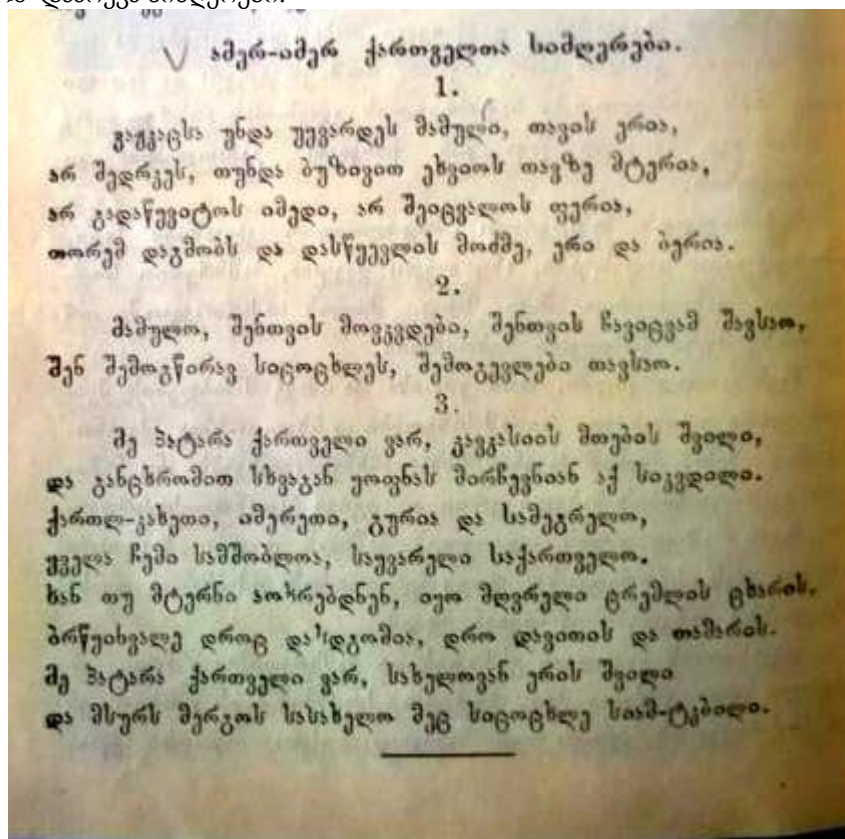 ამერ-იმერ ქართველთა სიმღერები.
1.
ვაჟკაცსა უნდა უყვარდეს მამული, თავის ერია,
არ შედრკეს, თუნდა ბუზივით ეხვიოს თავზე მტერია,
არ გადაწყვიტოს იმედი, არ შეიცვალოს ფერია,
თორემ დაგმობს და დასწყევლის მოძმე, ერი და ბერია.
2.
მამულო, შენთვის მოვკვდები, შენთვის ჩავიცვამ შავსაო,
შენ შემოგწირავ სიცოცხლეს, შემოგევლები თავსაო.
3.
მე პატარა ქართველი ვარ, კავკასიის მთების შვილი,
და განცხრომით სხვაგან ყოფნას მირჩევნიან აქ სიკვდილი.
ქართლ-კახეთი, იმერეთი, გურია და სამეგრელო,
ყველა ჩემი სამშობლოა, საყვარელი საქართველო.
ხან თუ მტერნი აოხრებდნენ, იყო მღვრელი ცრემლის ცხარის,
ბრწყინვალე დროც დასდგომია, დრო დავითის და თამარის.
მე პატარა ქართველი ვარ, სახელოვან ერის შვილი
და მსურს მერგოს სასახელო მეც სიცოცხლე სიამ-ტკბილი.